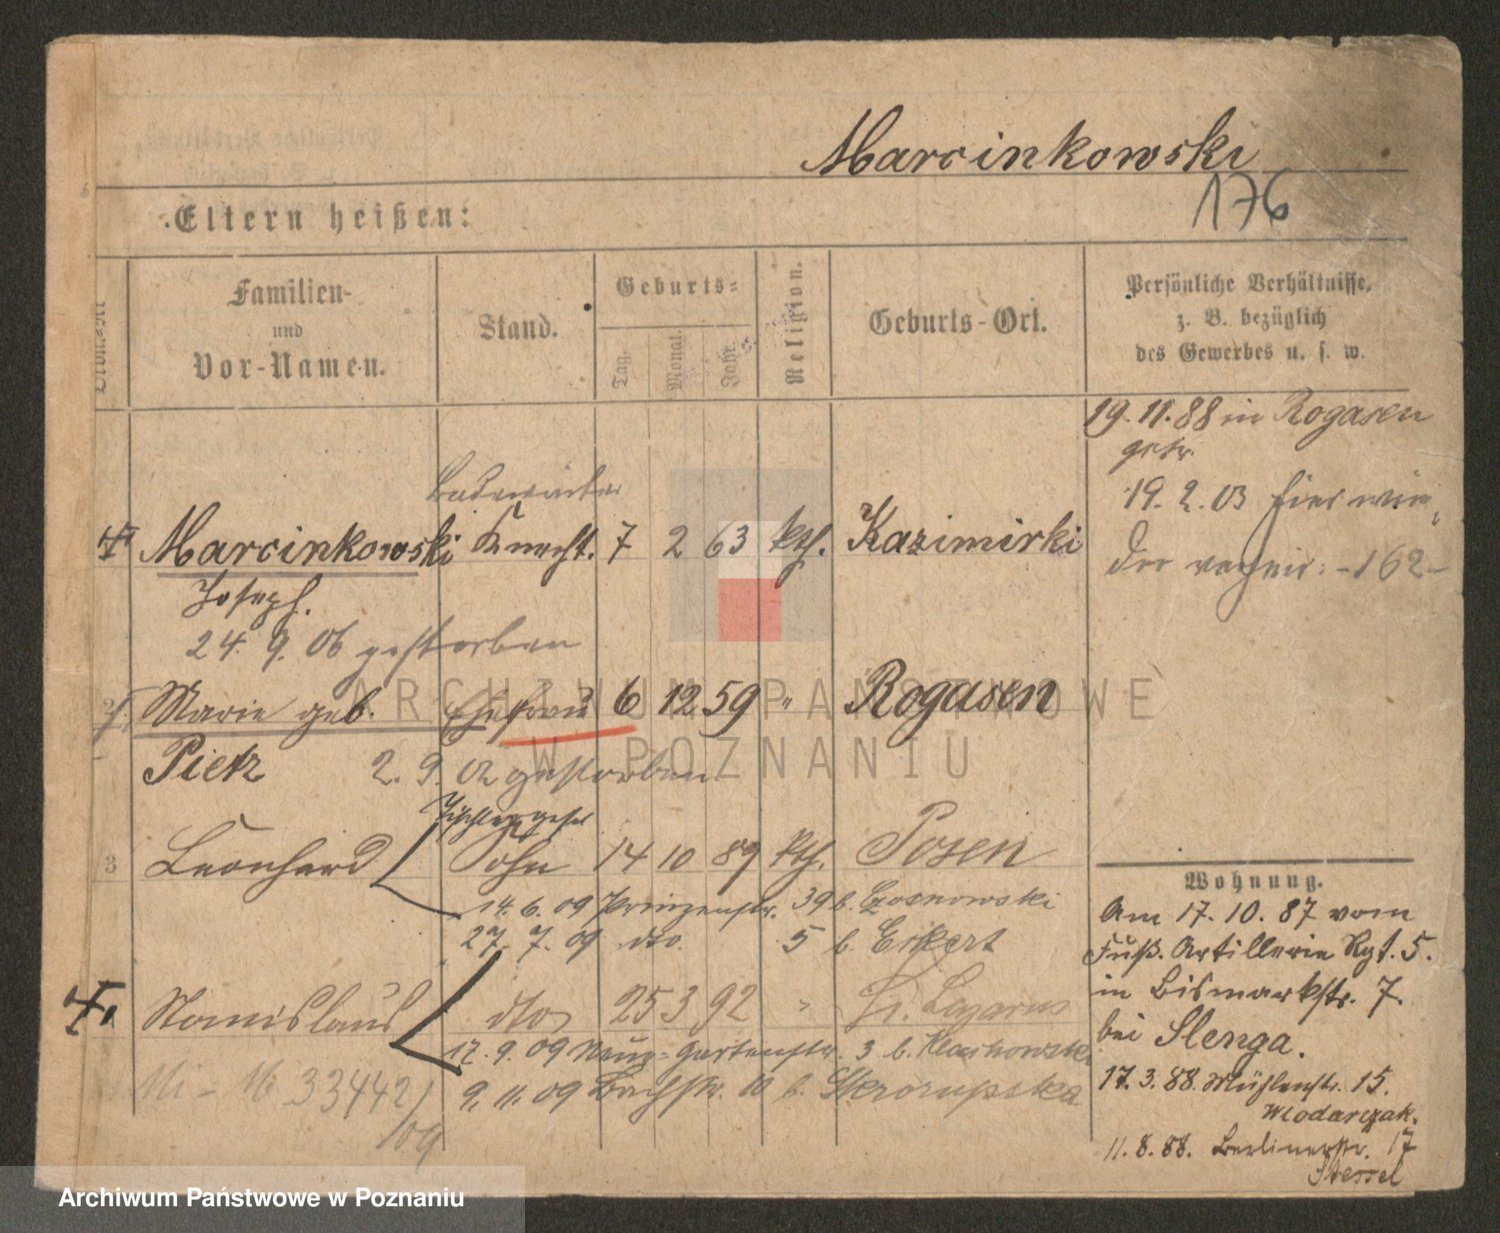 Marcinkowski
176
Eltern heißen:
Familien-
und
Vor-Namen.
Stand.
Geburts-
Tag.
Monat.
Jahr.
Religion.
Geburts-Ort.
Persönliche Verhältnisse,
z. B. bezüglich
des Gewerbes u. s. w.
19.11.88 in Rogasen
getr.
19.2.03 hier wie-
der
-162-
Marcinkowski Knecht. 7 2 63 kth. Kazimirki
Joseph.
24.9.06 gestorben
2 Marie geb. Ehefrau 6 12 59 " Rogasen
Pietz 2.9.02 gestorben
Tischlerges.
3 Leonhard Sohn 14 10 89 kth. Posen
14.6.09 Prinzenstr. 39 b. Gosnowski
27.7.09 dto. 5 b. Eikert
Stanislaus dto 25 3 92 " St. Lazarus
17.9.09 Neue-Gartenstr. 3 b.
9.11.09 Bachstr. 10 b. Skrorupska
33442/
/09
Wohnung.
Am 17.10.87 vom
Fuß. Artillerie Rgt. 5.
in Bismarkstr. 7.
bei Slenga.
17.3.88. Mühlenstr. 15.
Wlodarczak.
11.8.88. Berlinerstr. 17
Stessel
ARCHIWUM PAŃSTWOWE
W POZNANIU
Archiwum Państwowe w Poznaniu